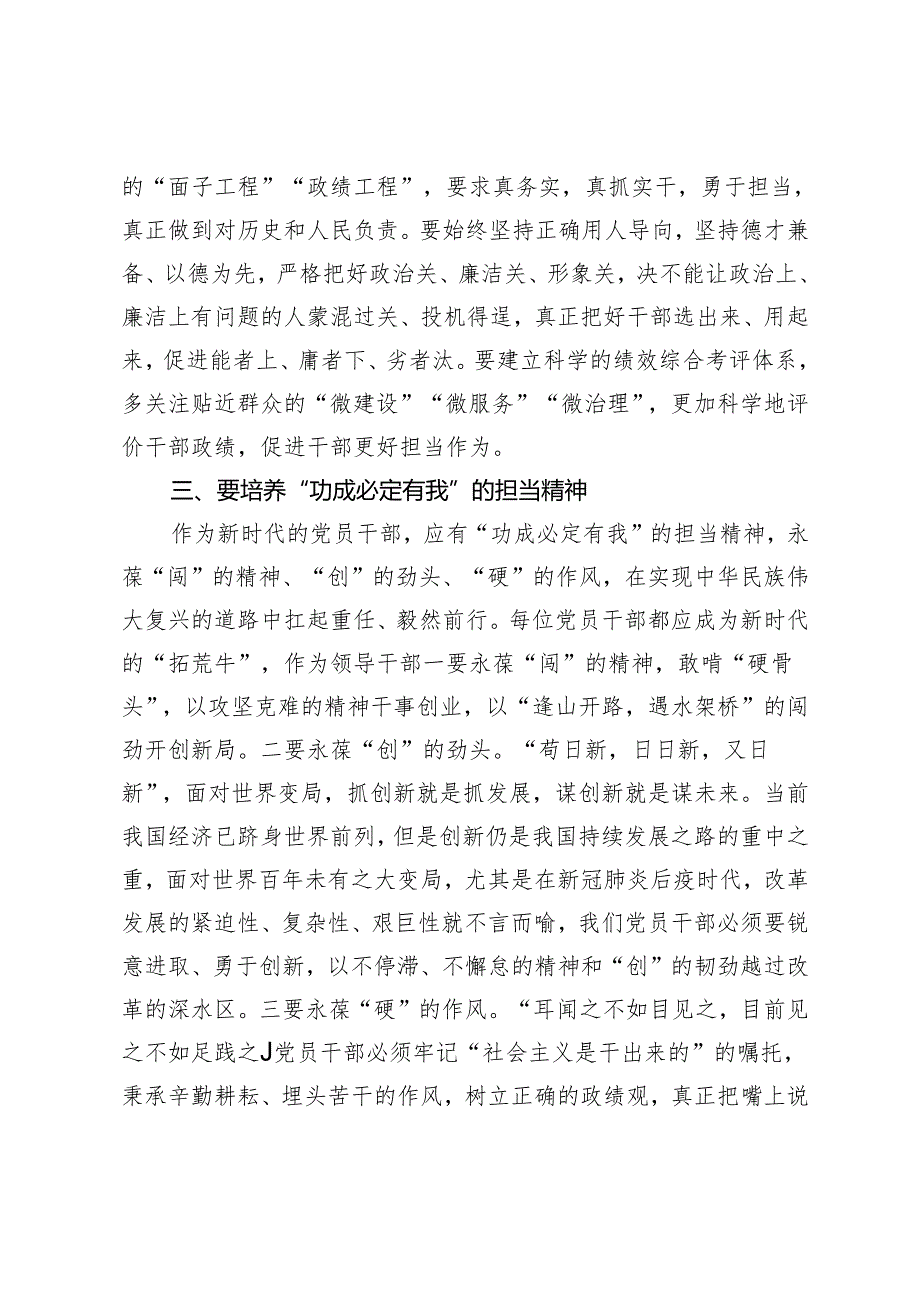 的“面子工程”“政绩工程”，要求真务实，真抓实干，勇于担当，
真正做到对历史和人民负责。要始终坚持正确用人导向，坚持德才兼
备、以德为先，严格把好政治关、廉洁关、形象关，决不能让政治上、
廉洁上有问题的人蒙混过关、投机得逞，真正把好干部选出来、用起
来，促进能者上、庸者下、劣者汰。要建立科学的绩效综合考评体系，
多关注贴近群众的“微建设”“微服务”“微治理”，更加科学地评
价干部政绩，促进干部更好担当作为。
三、要培养“功成必定有我”的担当精神
作为新时代的党员干部，应有“功成必定有我”的担当精神，永
葆“闯”的精神、“创”的劲头、“硬”的作风，在实现中华民族伟
大复兴的道路中扛起重任、毅然前行。每位党员干部都应成为新时代
的“拓荒牛”，作为领导干部一要永葆“闯”的精神，敢啃“硬骨
头”，以攻坚克难的精神干事创业，以“逢山开路，遇水架桥”的闯
劲开创新局。二要永葆“创”的劲头。“苟日新，日日新，又日
新”，面对世界变局，抓创新就是抓发展，谋创新就是谋未来。当前
我国经济已跻身世界前列，但是创新仍是我国持续发展之路的重中之
重，面对世界百年未有之大变局，尤其是在新冠肺炎后疫时代，改革
发展的紧迫性、复杂性、艰巨性就不言而喻，我们党员干部必须要锐
意进取、勇于创新，以不停滞、不懈怠的精神和“创”的韧劲越过改
革的深水区。三要永葆“硬”的作风。“耳闻之不如目见之，目前见
之不如足践之J党员干部必须牢记“社会主义是干出来的”的嘱托，
秉承辛勤耕耘、埋头苦干的作风，树立正确的政绩观，真正把嘴上说